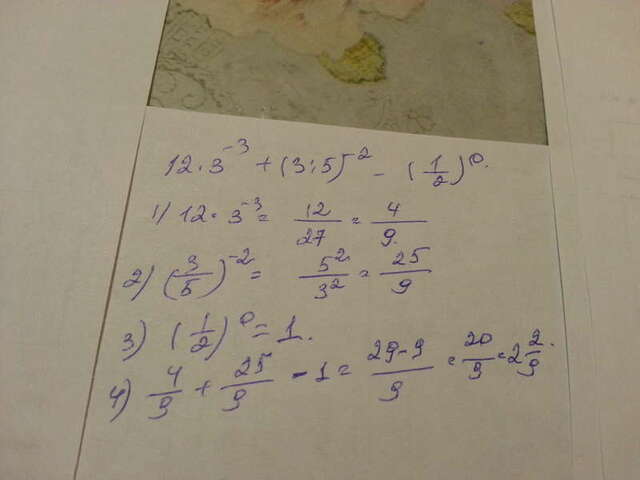 12·3⁻³ + (3:5)⁻² - (1/2)⁰.
1) 12·3⁻³ = 12/27 = 4/9.
2) (3/5)⁻² = 5²/3² = 25/9
3) (1/2)⁰ = 1.
4) 4/9 + 25/9 - 1 = 29-9/9 = 20/9 = 2 2/9.